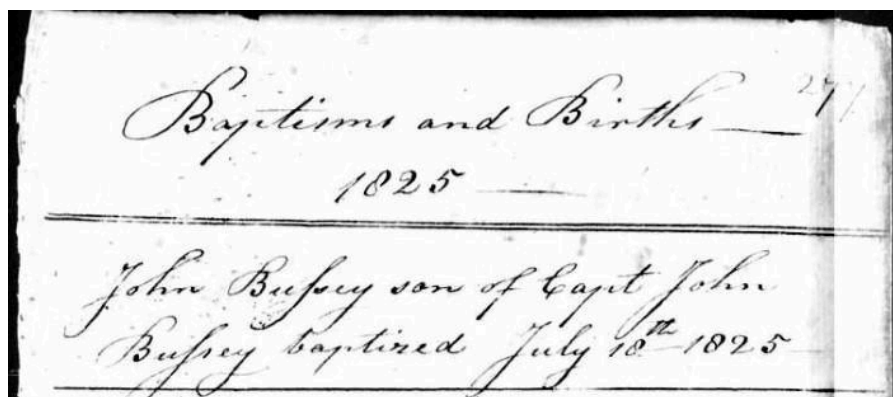 277
Baptisms and Births
1825
John Bussey son of Capt John
Bussey baptized July 18th 1825